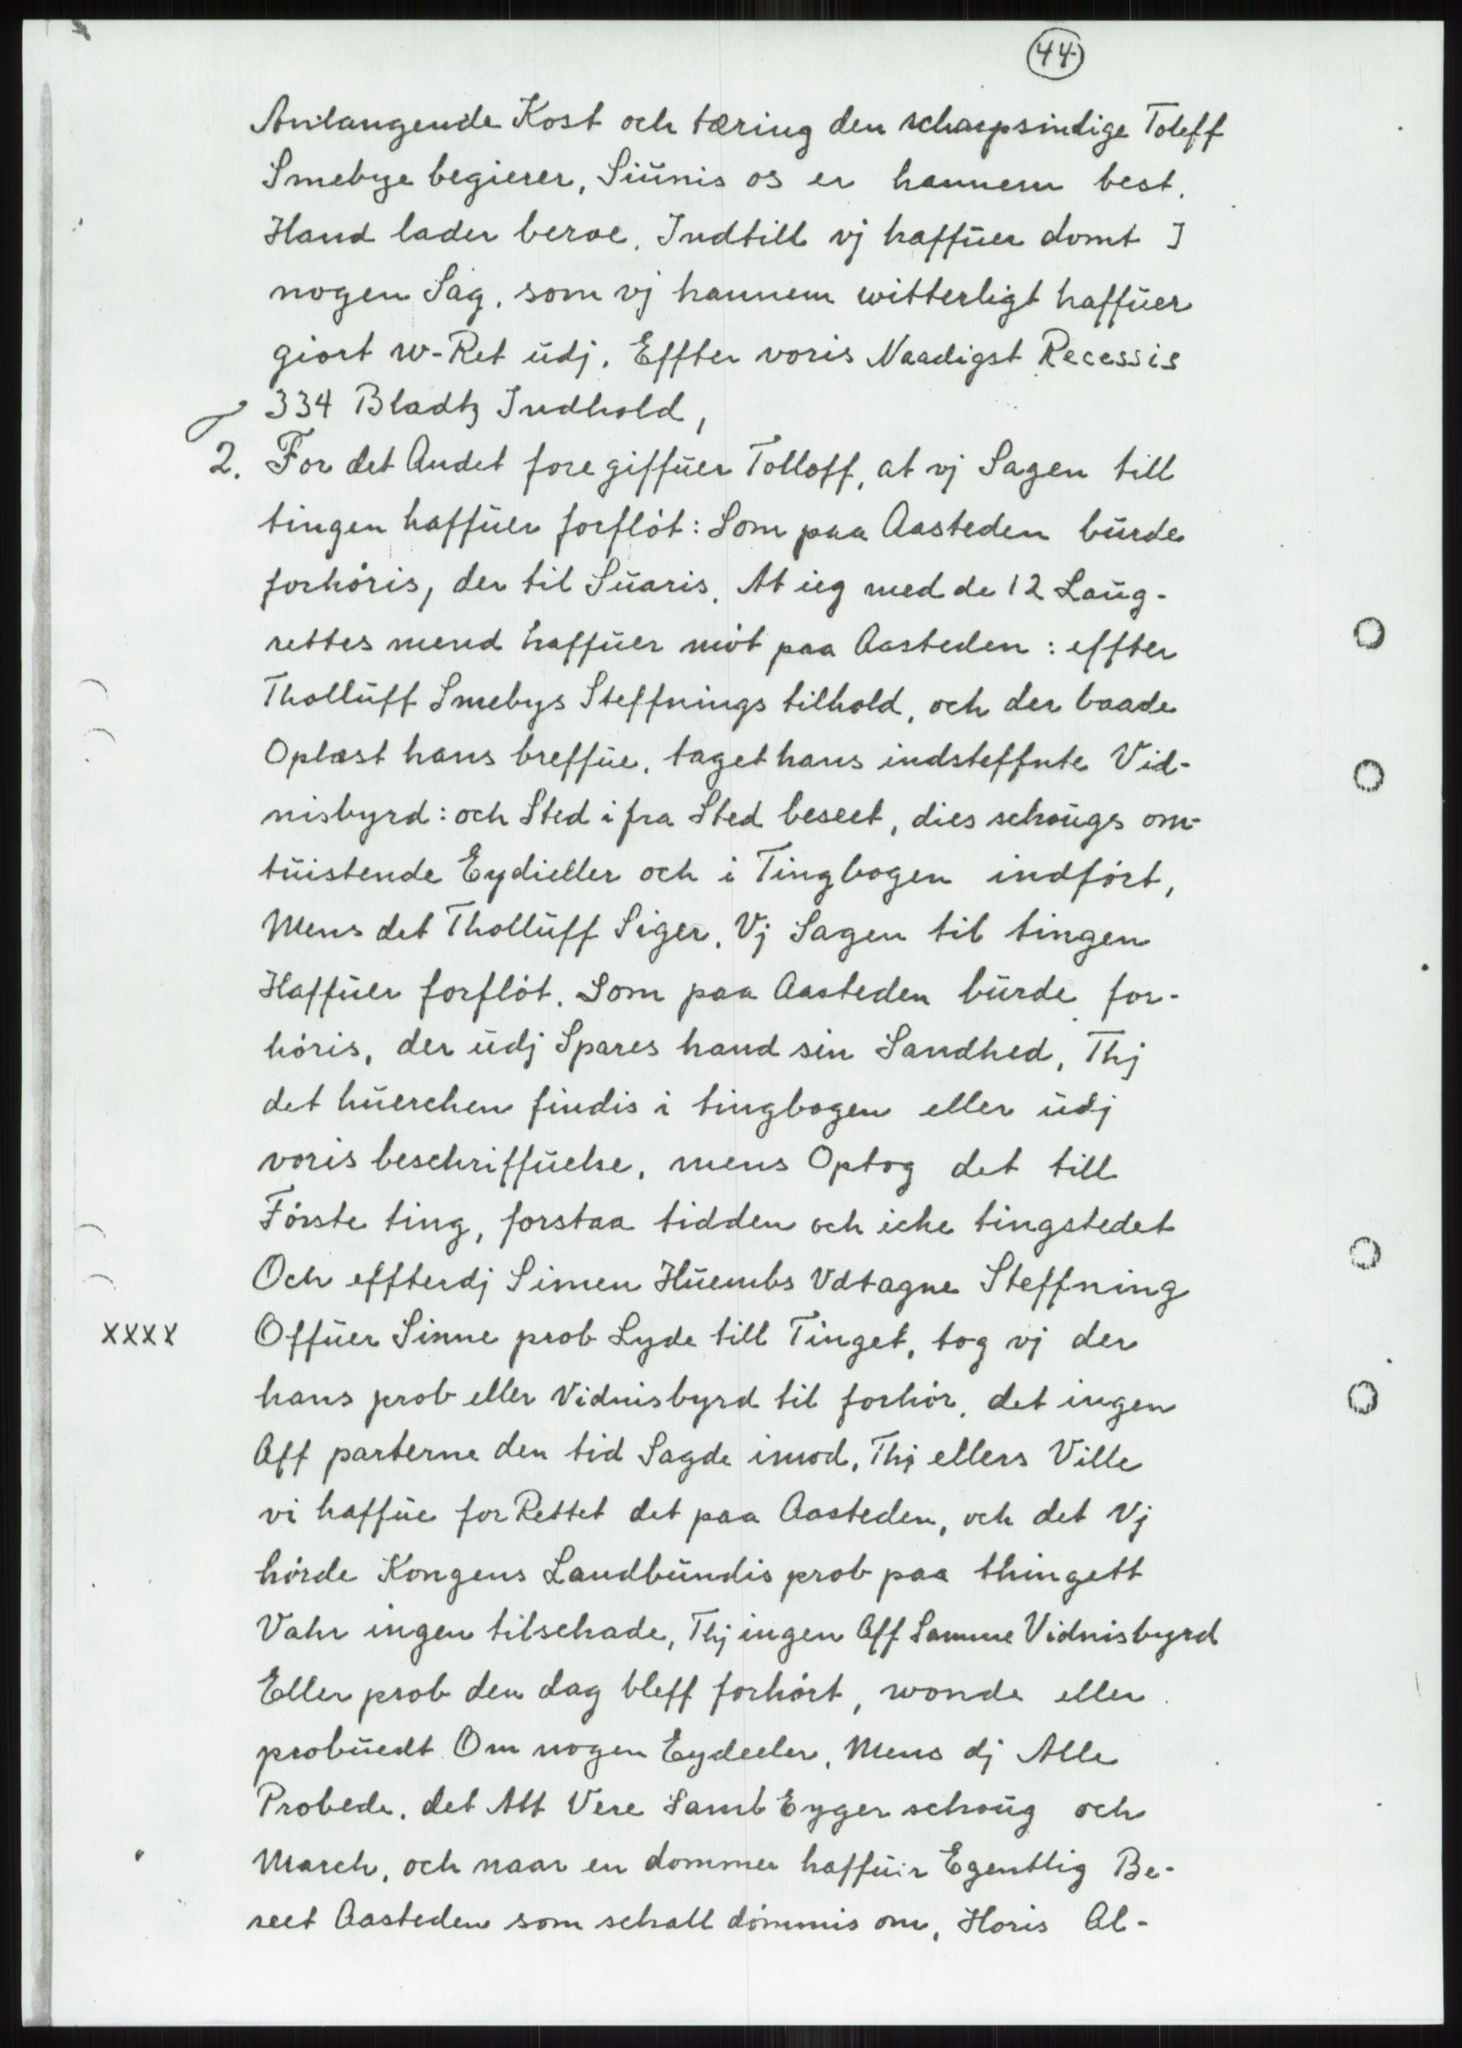 44
Anlangende Kost och tæring den scharpsindige Toleff
Smebye begierer, Siünis os er hannem best.
Hand lader beroe. Indtill vj haffüer domt I
nogen Sag, som vj hannem witterligt haffüer
giort w-Ret üdj. Effter voris Naadigst Recessis
334 Bladtz Indhold,
2. For det Andet foregiffüer Tolloff, at vj Sagen till
tingen haffüer forflót: Som paa Aasteden bürde
forhóris, der til Süaris. At ieg med de 12 Laug-
rettes mend haffüer mót paa Aasteden: effter
Tholluff Smebys Steffnings tilhold, och der baade
Oplæst hans breffüe, taget hans indsteffnte Vid-
nisbyrd: och Sted i fra Sted beseet, dies schougs om-
tüistende Eydieller och i Tingbogen indfórt,
Mens det Tholluff Siger, Vj Sagen til tingen
Haffüer forflót. Som paa Aasteden bürde for-
hóris, der üdj Spares hand sin Sandhed, Thj
det hüerchen findis i tingbogen eller üdj
voris beschriffüelse, mens Optog det till
Fórste ting, forstaa tidden och iche tingstedet
Och effterdj Simen Hüembs Vdtagne Steffning
XXXX Offüer Sinne prob Lyde till Tinget, tog vj der
hans prob eller Vidnisbyrd til forhór, det ingen
Aff parterne den tid Sagde imod, Thj ellers Ville
vi haffüe forRettet det paa Aasteden, och det Vj
hórde Kongens Landbündis prob paa thingett
Vahr ingen tilschade, Thj ingen Aff Samme Vidnisbyrd
Eller prob den dag bleff forhórt, wonde eller
probüedt Om nogen Eydeeler, Mens dj Alle
Probede, det Alt Vere Samb Eyger schoüg och
March, och naar en dommer haffüir Egentlig Be-
seet Aasteden som schall dómmis om, Horis Al-